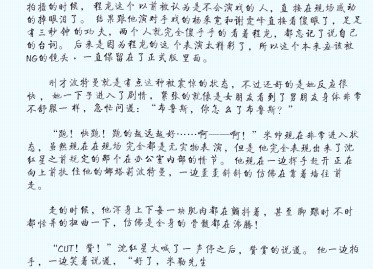 拍摄的时候，程龙这个以前被认为是不会演戏的人，直接在现场感动
的掉眼泪了。结果跟他演对手戏的杨采霓和谢霆峰直接看傻眼了，足足
有三秒钟的功夫，两个人就完全傻乎乎的看着程龙，都忘记了说自己
的台词。后来是因为程龙的这个表演太精彩了，所以这个本来应该被
NG的镜头，一直保留在了正式版里面。
刚才波特曼就是有点这种被震惊的状态，不过还好的是她反应很
快，她一下子进入了剧情，紧张的就像是女朋友看到了男朋友身体非常
不舒服一样，急忙问道：“布鲁斯，你怎么了布鲁斯？”
“跑！快跑！跑的越远越好……啊——啊！”米帅现在非常进入状
态，虽然现在在现场完全都是无实物表演，但是他完全表现出来了沈
红星之前规定的那个在办公室内部的情节。他现在一边挥手赶开正在
向上前扶住他的娜塔莉波特曼，一边歪歪斜斜的仿佛在靠着墙往前
走。
走的时候，他浑身上下每一块肌肉都在颤抖着，甚至脚跟时不时
都怪异的扭曲一下，仿佛是全身的骨骼都在沸腾！
“CUT！赞！”沈红星大喊了一声停之后，赞赏的说道。他一边拍
手，一边笑着说道，“好了，米勒先生